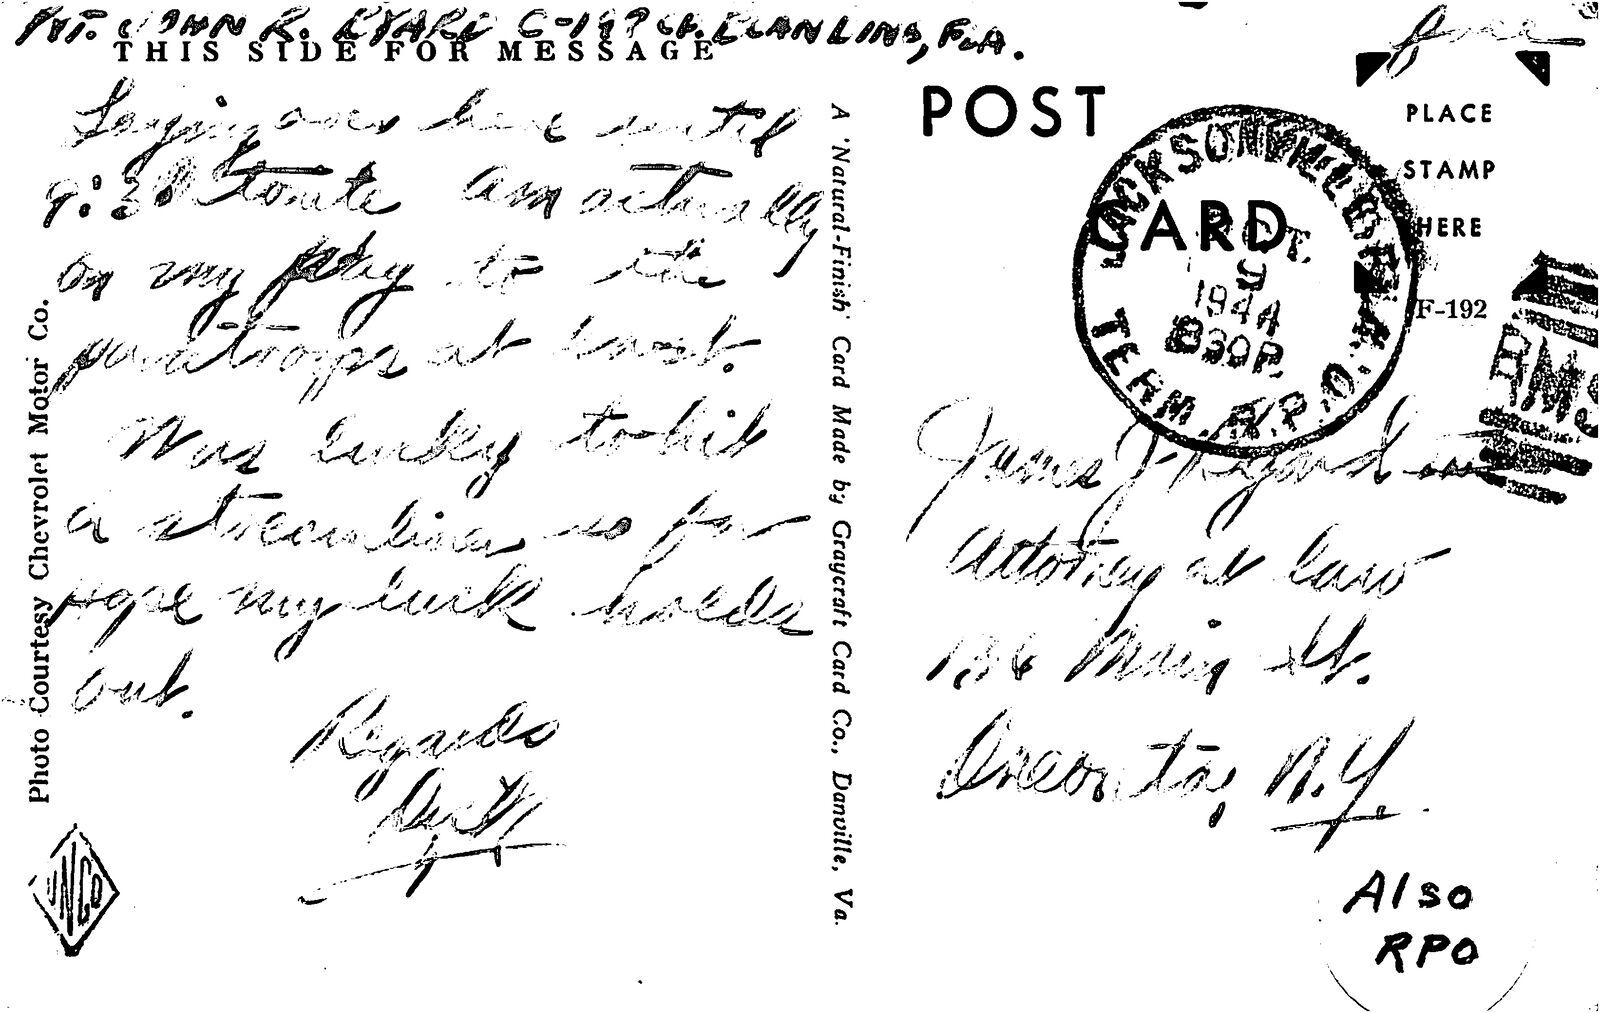 PVT. JOHN R. C-197 BLANDING, FLA.
THIS SIDE FOR MESSAGE
Laying over here until
9:30 tonite am actually
on my way to the
paratroops at last.
Was lucky to hit
a streamliner so far
Hope my luck holds
out.
Regards
Photo Courtesy Chevrolet Motor Co.
A 'Natural-Finish' Card Made by Graycraft Card Co., Danville, Va.
Free
POST CARD
PLACE
STAMP
HERE
F-192
JACKSONVILLE
OCT.
9
1944
830P.
TERM. R.P.O.
RMS
James J.
Attorney at law
136 Main St.
Oneonta, N.Y.
Also
RPO